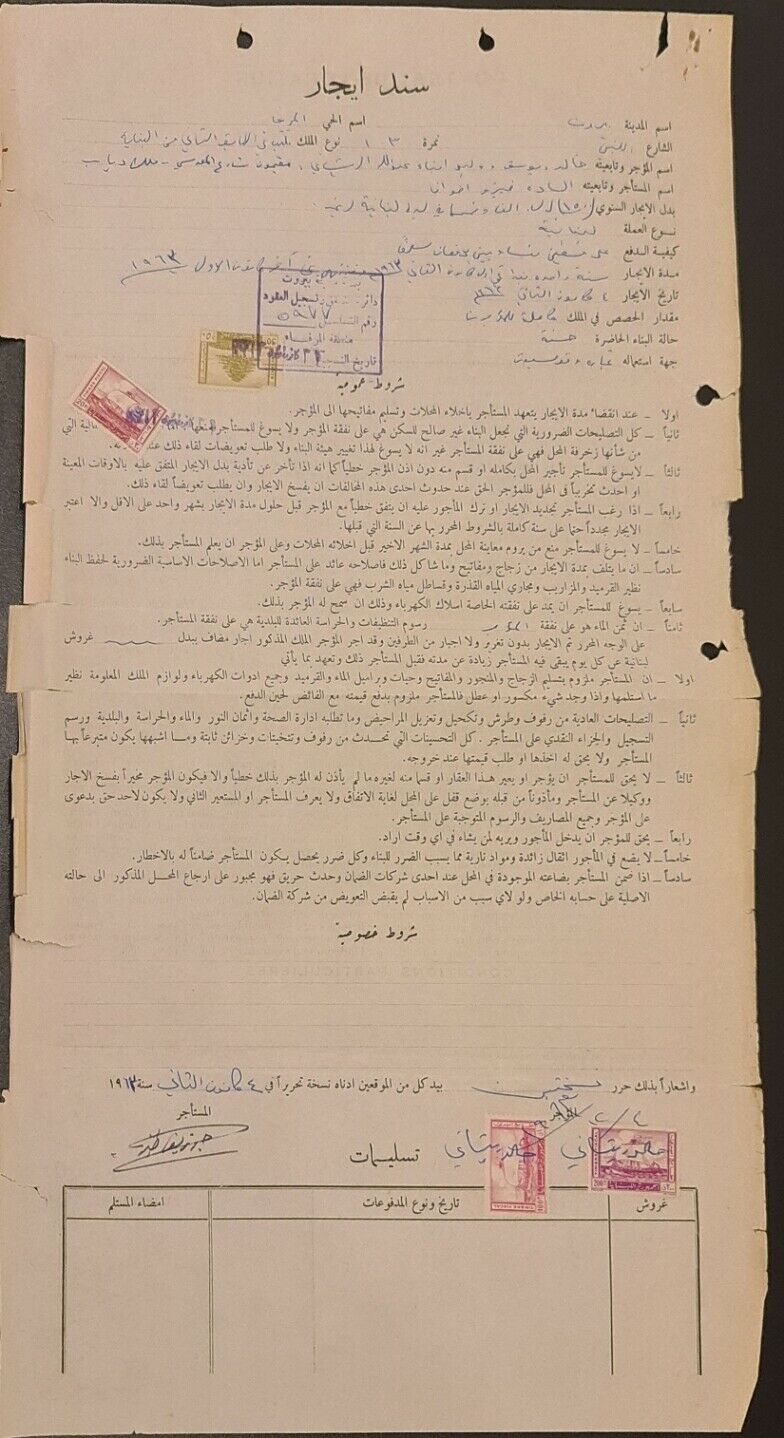 سند ايجار
اسم المدينة بيروت اسم الحي المرفأ
الشارع اللنبي نمرة ١٣ نوع الملك
اسم المؤجر وتابعيته خالد ويوسف
اسم المستأجر وتابعيته السادة
بدل الايجار السنوي /١٥٠٠/ ل.ل. الف وخمسماية ليرة لبنانية
نوع العملة لبنانية
كيفية الدفع على قسطين متساويين يدفعان سلفاً
مدة الايجار سنة واحدة كانون الثاني ١٩٦٣ كانون الاول ١٩٦٣
تاريخ الايجار ٤ كانون الثاني
مقدار الحصص في الملك كاملة
حالة البناء الحاضرة حسنة
جهة استعماله تجارة
بيروت
دائرة تسجيل العقود
رقم التسلسل ٥٩٧٧
منطقة المرفأ
تاريخ التسجيل
شروط عمومية
اولا – عند انقضاء مدة الايجار يتعهد المستأجر باخلاء المحلات وتسليم مفاتيحها الى المؤجر.
ثانياً – كل التصليحات الضرورية التي تجعل البناء غير صالح للسكن هي على نفقة المؤجر ولا يسوغ للمستأجر التي
من شأنها زخرفة المحل فهي على نفقة المستأجر غير انه لا يسوغ لهذا تغيير هيئة البناء ولا طلب تعويضات لقاء ذلك عند
ثالثاً – لا يسوغ للمستأجر تأجير المحل بكامله او قسم منه دون اذن المؤجر خطياً كما انه اذا تأخر عن تأدية بدل الايجار المتفق عليه بالاوقات المعينة
او احدث تخريباً في المحل فللمؤجر الحق عند حدوث احدى هذه المخالفات ان يفسخ الايجار وان يطلب تعويضاً لقاء ذلك.
رابعاً – اذا رغب المستأجر تجديد الايجار او ترك المأجور عليه ان يتفق خطياً مع المؤجر قبل حلول مدة الايجار بشهر واحد على الاقل والا اعتبر
الايجار مجدداً حتما على سنة كاملة بالشروط المحرر بها عن السنة التي قبلها.
خامساً – لا يسوغ للمستأجر منع من يروم معاينة المحل بمدة الشهر الاخير قبل اخلائه المحلات وعلى المؤجر ان يعلم المستأجر بذلك.
سادساً – ان ما يتلف بمدة الايجار من زجاج ومفاتيح وما شاكل ذلك فاصلاحه عائد على المستأجر اما الاصلاحات الاساسية الضرورية لحفظ البناء
نظير القرميد والمزاريب ومجاري المياه القذرة وقساطل مياه الشرب فهي على نفقة المؤجر.
سابعاً – يسوغ للمستأجر ان يمد على نفقته الخاصة اسلاك الكهرباء وذلك ان سمح له المؤجر بذلك.
ثامناً – ان ثمن الماء هو على نفقة رسوم التنظيفات والحراسة العائدة للبلدية هي على نفقة المستأجر.
على الوجه المحرر تم الايجار بدون تغرير ولا اجبار من الطرفين وقد اجر المؤجر الملك المذكور ايجار مضاف ببدل غروش
لبنانية عن كل يوم يبقى فيه المستأجر زيادة عن مدته فقبل المستأجر ذلك وتعهد بما يأتي
اولا – ان المستأجر ملزوم بتسليم الزجاج والمنجور والمفاتيح وحبات وبراميل الماء والقرميد وجميع ادوات الكهرباء ولوازم الملك المعلومة نظير
ما استلمها واذا وجد شيء مكسور او عطل فالمستأجر ملزوم بدفع قيمته مع الفائض لحين الدفع.
ثانياً – التصليحات العادية من رفوف وطرش وتكحيل وتعزيل المراحيض وما تطلبه ادارة الصحة واثمان النور والماء والحراسة والبلدية ورسم
التسجيل والجزاء النقدي على المستأجر. كل التحسينات التي تحدث من رفوف وتتخيتات وخزائن ثابتة وما اشبهها يكون متبرعاً بها
المستأجر ولا يحق له اخذها او طلب قيمتها عند خروجه.
ثالثاً – لا يحق للمستأجر ان يؤجر او يعير هذا العقار او قسما منه لغيره ما لم يأذن له المؤجر بذلك خطياً والا فيكون المؤجر مخيراً بفسخ الاجار
ووكيلا عن المستأجر ومأذوناً من قبله بوضع قفل على المحل لغاية الاتفاق ولا يعرف المستأجر او المستعير الثاني ولا يكون لاحد حق بدعوى
على المؤجر وجميع المصاريف والرسوم المتوجبة على المستأجر.
رابعاً – يحق للمؤجر ان يدخل المأجور ويريه لمن يشاء في اي وقت اراد.
خامساً – لا يضع في المأجور اثقال زائدة ومواد نارية مما يسبب الضرر للبناء وكل ضرر يحصل يكون المستأجر ضامناً له بالاخطار.
سادساً – اذا ضمن المستأجر بضاعته الموجودة في المحل عند احدى شركات الضمان وحدث حريق فهو مجبور على ارجاع المحل المذكور الى حالته
الاصلية على حسابه الخاص ولو لاي سبب من الاسباب لم يقبض التعويض من شركة الضمان.
شروط خصوصية
واشعاراً بذلك حرر نسختين بيد كل من الموقعين ادناه نسخة تحريراً في ٤ كانون الثاني سنة ١٩٦٣
المؤجر المستأجر
تسليمات
200
غروش تاريخ ونوع المدفوعات امضاء المستلم